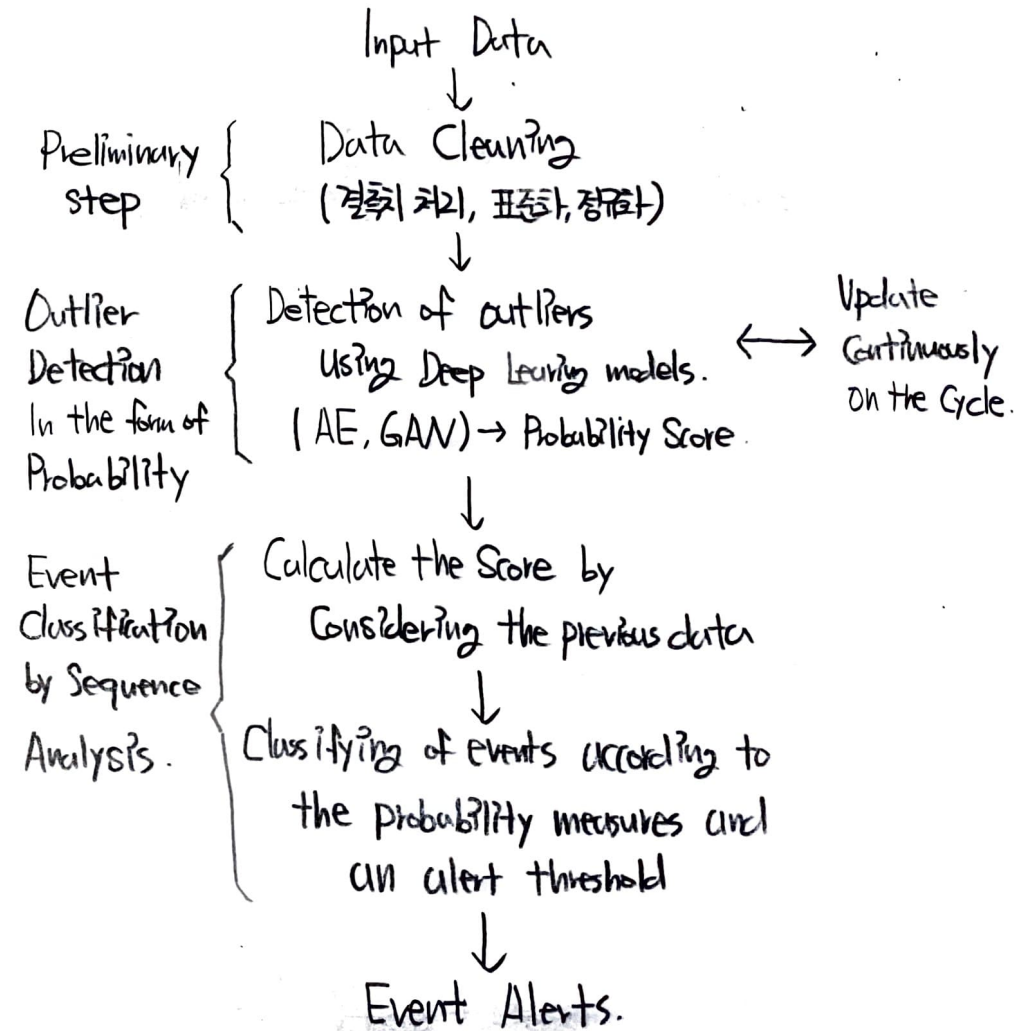 Input Data
Preliminary
step
Data Cleaning
(결측치 처리, 표준화, 정규화)
Outlier
Detection
In the form of
Probability
Detection of outliers
Using Deep Learing models.
(AE, GAN) → Probability Score.
Update
Continuously
on the Cycle.
Event
Classification
by Sequence
Analysis.
Calculate the Score by
Considering the previous data
Classifying of events according to
the probability measures and
an alert threshold
Event Alerts.